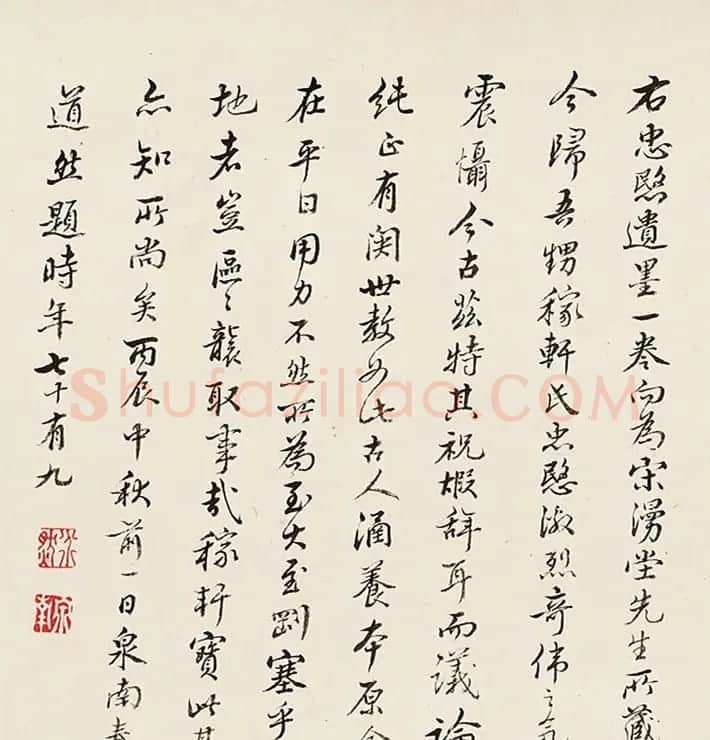 右忠愍遺墨一卷向為宋漫堂先生所藏
今歸吾甥稼軒氏忠愍淑烈奇偉之氣
震懾今古茲特其祝嘏辭耳而議論
純正有関世教如此古人涵養本原
在平日用力不然所為至大至剛塞乎
地者豈區々襲取事哉稼軒寶此其
亦知所尚矣丙辰中秋前一日泉南
道然題時年七十有九
Shufaziliao.COM